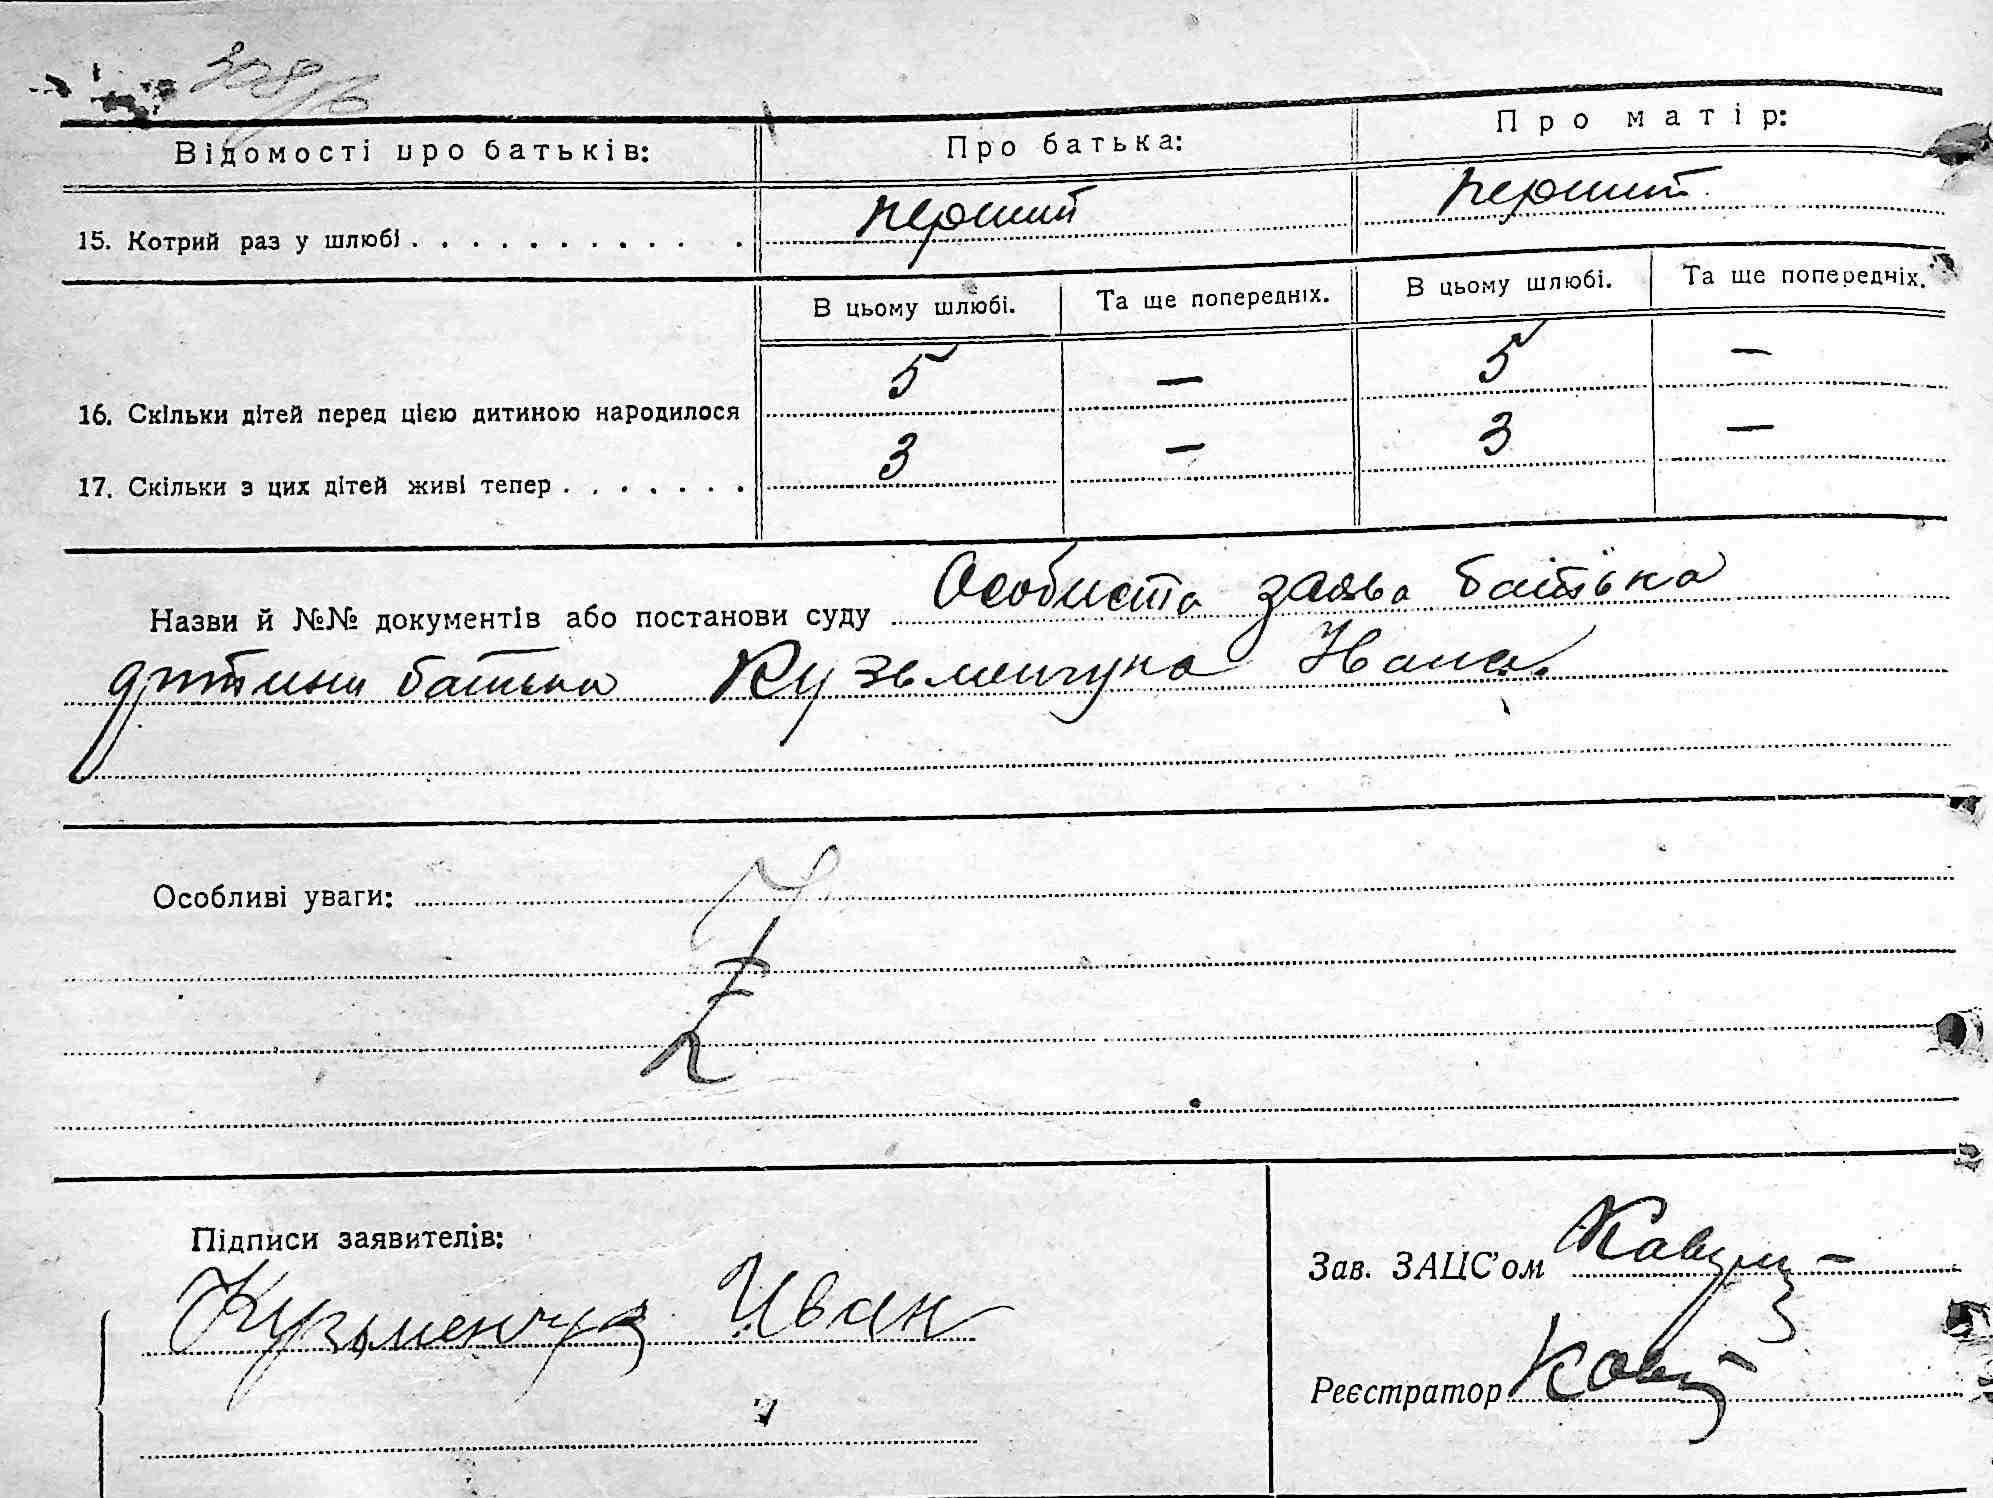 Відомості про батьків: Про батька: Про матір:
15. Котрий раз у шлюбі . . . . . . . . . . . . перший перший
В цьому шлюбі. Та ще попередніх. В цьому шлюбі. Та ще попередніх.
16. Скільки дітей перед цією дитиною народилося 5 — 5 —
17. Скільки з цих дітей живі тепер . . . . . . . 3 — 3 —
Назви й №№ документів або постанови суду Особиста заява батька
дитини батька Кузьменчука Івана.
Особливі уваги:
Z
Підписи заявителів:
Кузьменчук Иван
Зав. ЗАЦС'ом
Реєстратор